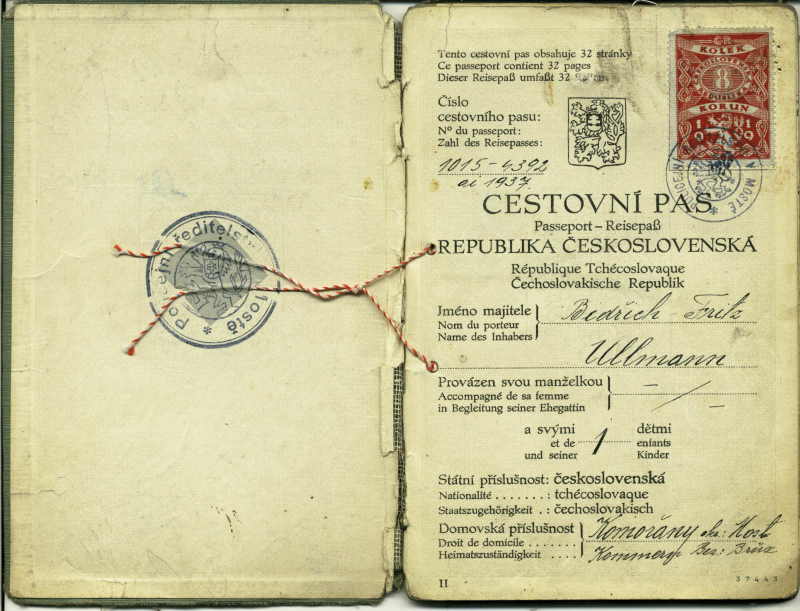 Policejní ředitelství
Mostě *
Tento cestovní pas obsahuje 32 stránky
Ce passeport contient 32 pages
Dieser Reisepaß umfaßt 32 Seiten
KOLEK
8
KORUN
1 9 1 9
Číslo
cestovního pasu:
Nº du passeport:
Zahl des Reisepasses:
1015-4392
ai 1937.
MOSTĚ *
CESTOVNÍ PAS
Passeport – Reisepaß
REPUBLIKA ČESKOSLOVENSKÁ
République Tchécoslovaque
Čechoslovakische Republik
Jméno majitele
Nom du porteur
Name des Inhabers
Bedřich - Fritz
Ullmann
Provázen svou manželkou
Accompagné de sa femme
in Begleitung seiner Ehegattin
— / —
a svými
et de
und seiner
1
dětmi
enfants
Kinder
Státní příslušnost: československá
Nationalité . . . . . . . : tchécoslovaque
Staatszugehörigkeit . . : čechoslovakisch
Domovská příslušnost
Droit de domicile . . . . . . .
Heimatszuständigkeit . . . .
Komořany okr. Most
Kommern Bez: Brüx
II
37443